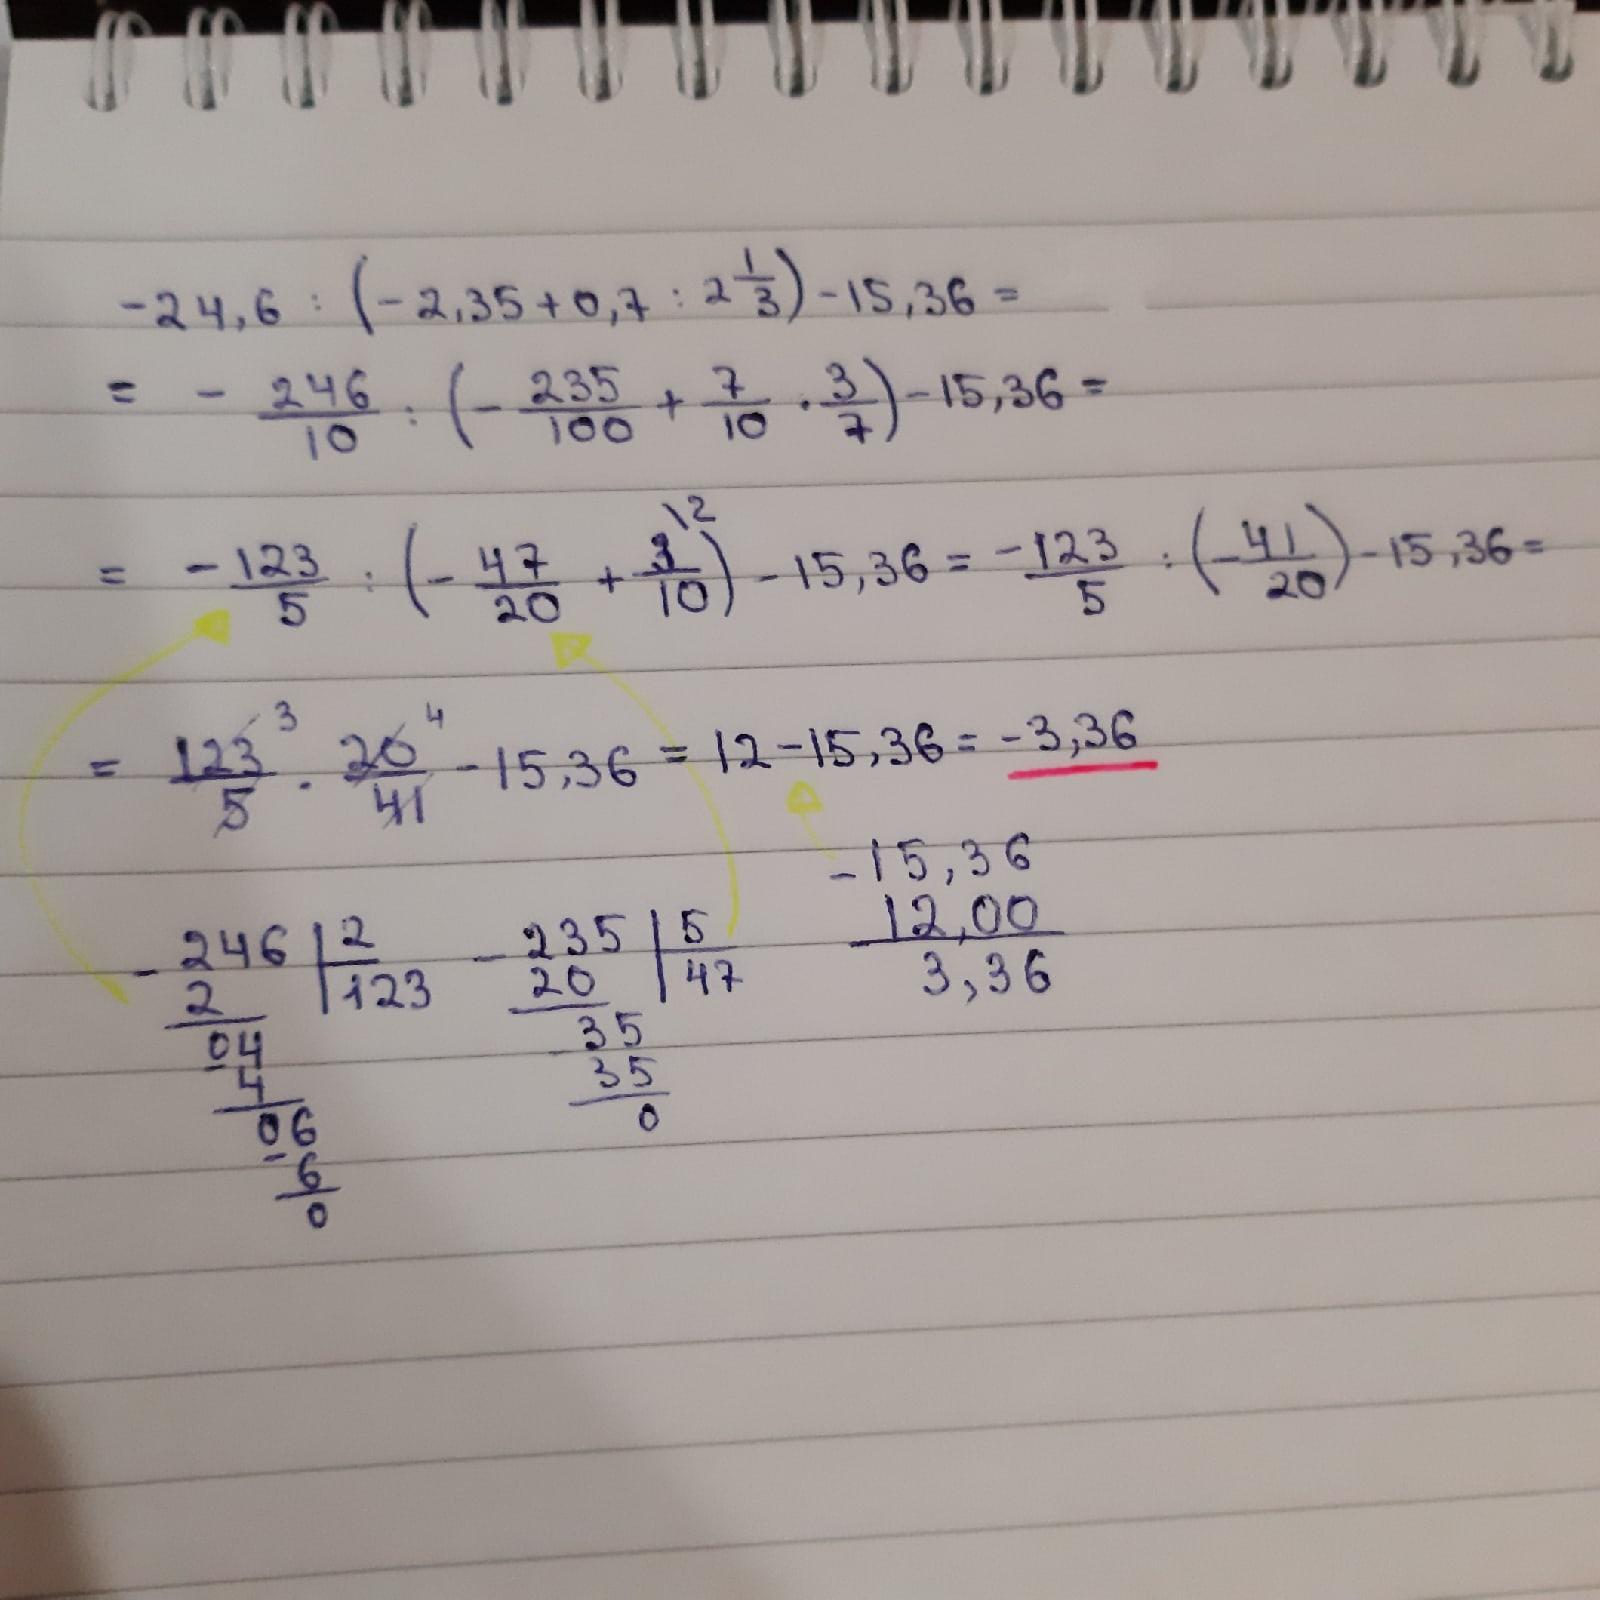 -24,6 : (-2,35+0,7 : 2 1/3) -15,36 =
= - 246/10 : (- 235/100 + 7/10 · 3/7) -15,36 =
= - 123/5 : (- 47/20 + 3\2/10) -15,36 = - 123/5 : (- 41/20) -15,36 =
= 123 3/5 · 20 4/41 -15,36 = 12 -15,36 = -3,36
-15,36
12,00
3,36
- 246 | 2
2 | 123
04
- 4
06
- 6
0
- 235 | 5
20 | 47
- 35
35
0